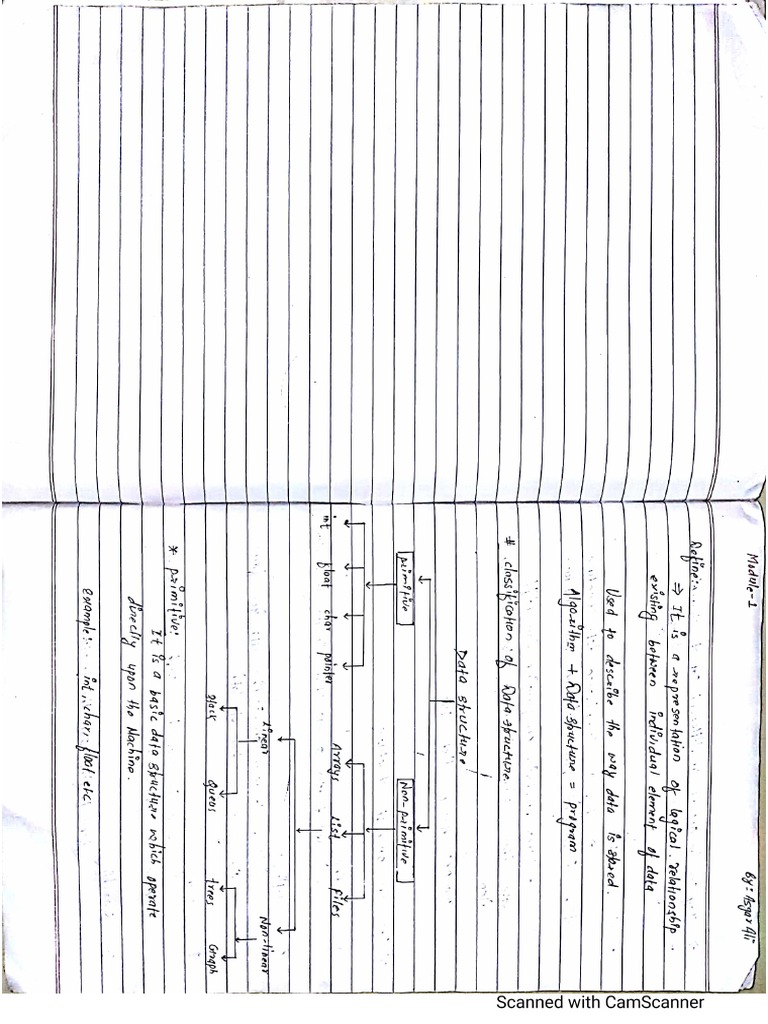 Module-1
By: Asgar Ali
Define:-
⇒ It is a representation of logical relationship
existing between individual element of data
Used to describe the way data is stored.
Algorithm + Data structure = program
# classification of Data structure
Data structure
primitive
Non-primitive
int float char pointer
Arrays List Files
Linear
Non-linear
stack queas trees Graph
* primitive:
It is a basic data structure which operate
directly upon the Machine.
example: int, char, float etc
Scanned with CamScanner